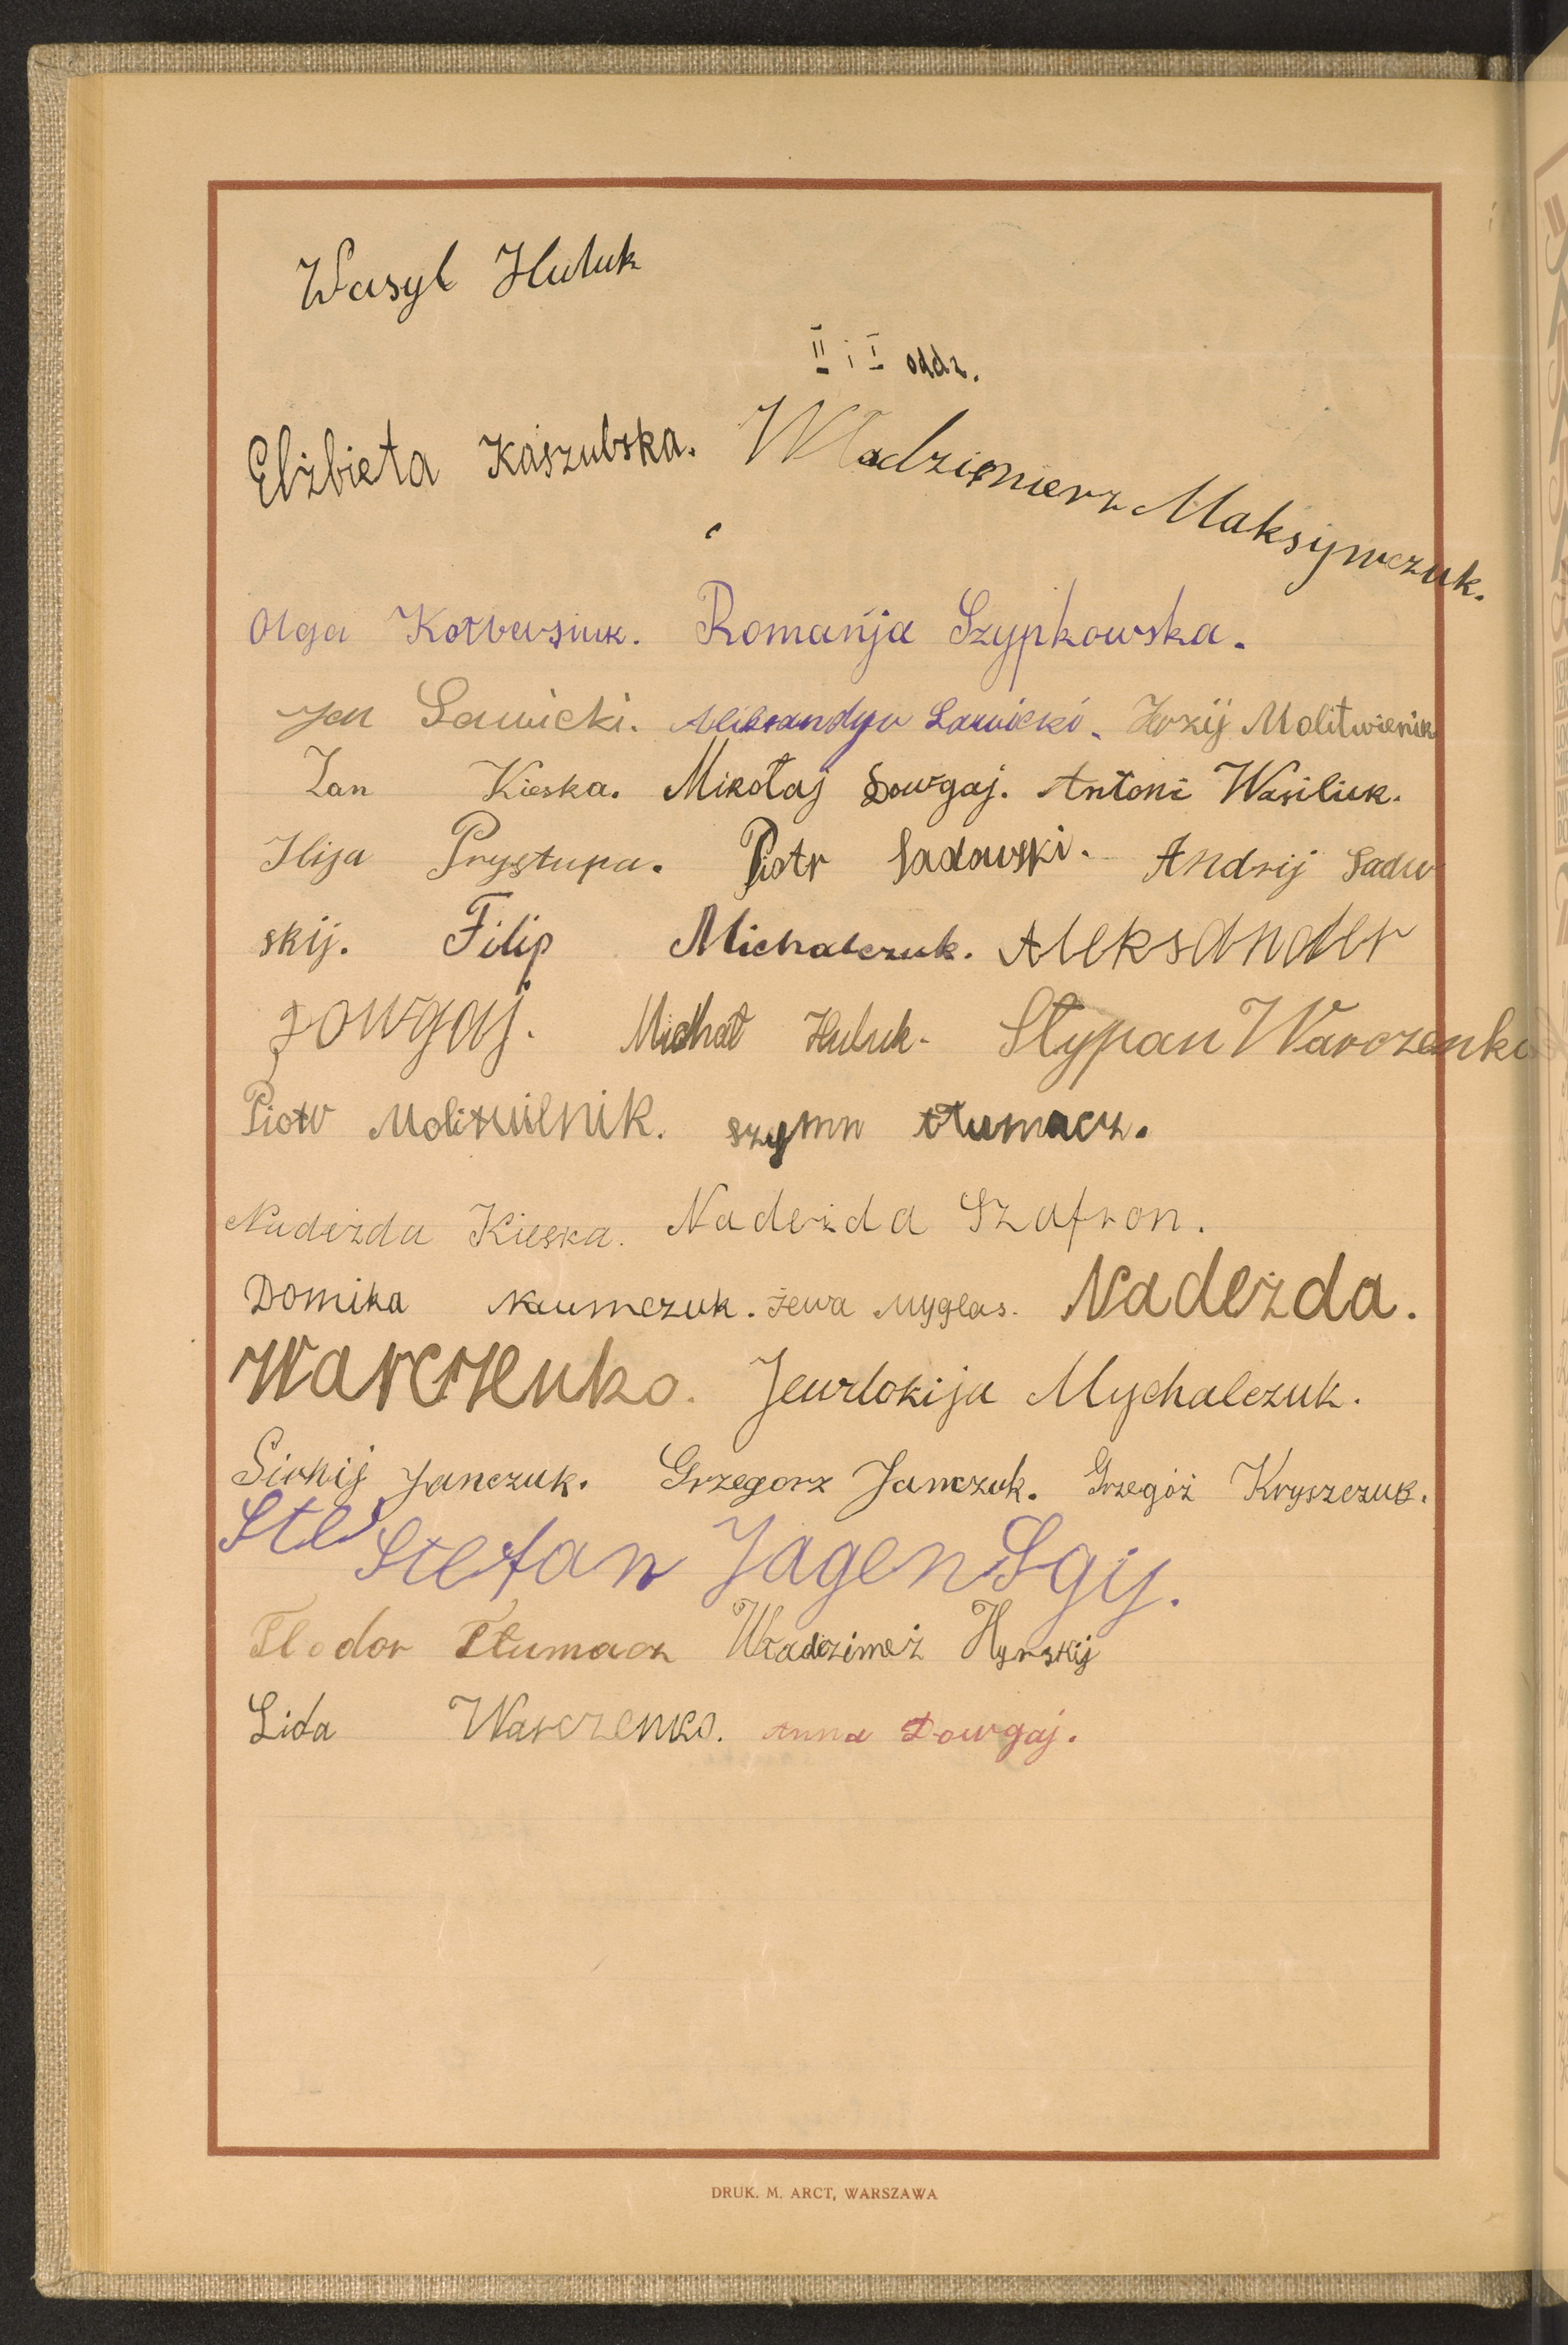 Wasyl Huluk
II i I oddz.
Elżbieta Kaszubska. Władzimierz Maksymczuk.
Olga Romanija Szypkowska.
Jan Sawicki. Sawicki. Molitwienik
Jan Kieska. Mikołaj Dowgaj. Antoni Wasiliuk.
Ilija Prystupa. Piotr Sadowski. Andrij Sadw
skij. Filip Michalczuk. Aleksander
Dowgaj. Michał Huluk. Stypan Warczenko
Piotr Molitwienik. szymn tłumacz.
Nadeżda Kieska. Nadeżda Szafron.
Domika Naumczuk. Jewa Myglas. Nadeżda.
Warczenko. Jewdokija Mychalczuk.
Sirhij Janczuk. Grzegorz Janczuk. Grzegóż Kryszczuk.
Ste Stefan
Tłumacz Władzimeż Hyrskij
Lida Warczenko. Anna Dowgaj.
DRUK. M. ARCT, WARSZAWA